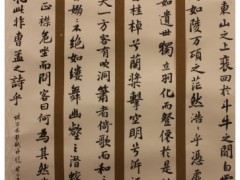 東山之上裵回於斗牛之間白露
如陵万頃之茫然浩〻乎憑虛
如遺世獨立羽化而登僊於是
桂棹兮蘭槳擊空明兮泝
天一方客有吹洞簫者倚歌而和
嫋〻不絕如縷舞幽壑之潛蛟
正襟危坐而問客曰何為其然
此非曹孟之詩乎